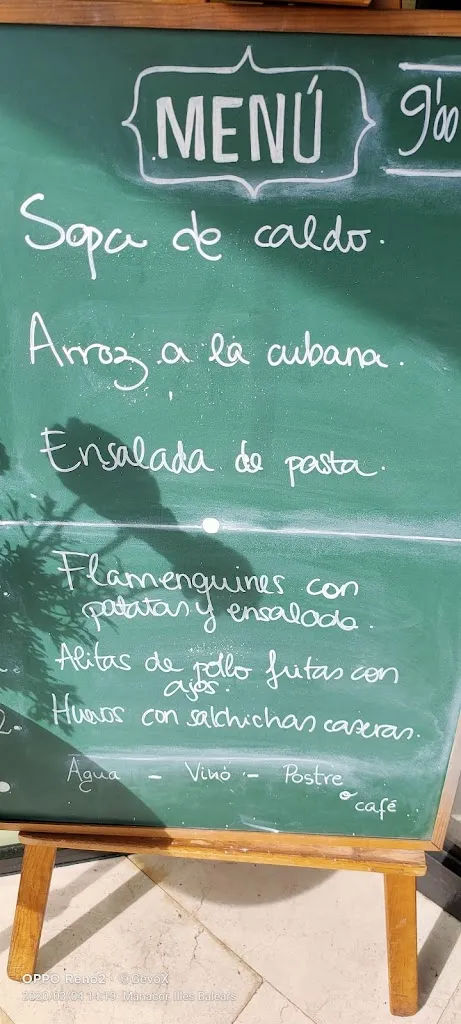 MENÚ 9'00
Sopa de caldo.
Arroz a la cubana.
Ensalada de pasta.
Flamenquines con
patatas y ensalada.
Alitas de pollo fritas con
ajos.
Huevos con salchichas caseras.
Agua - Vino - Postre
o café
OPPO Reno2 · ©GevoX
2020/03/04 14:19 Manacor, Illes Balears